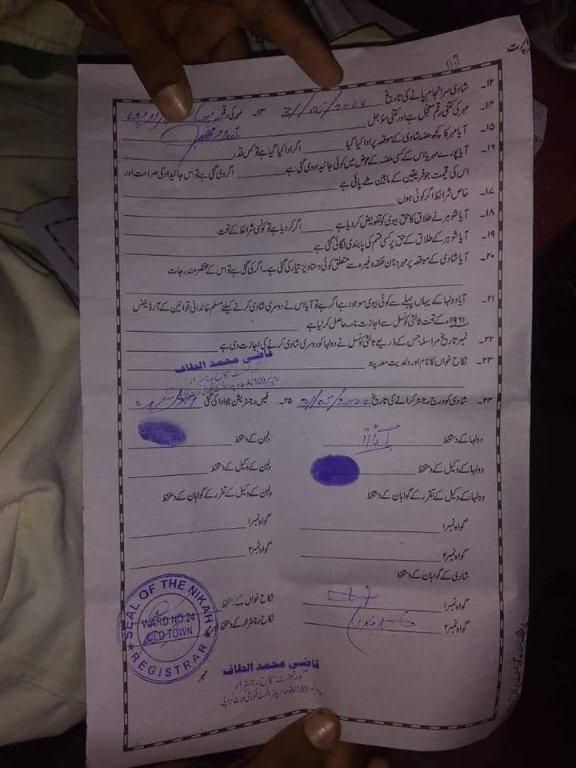 پرت
۱۲۔ شادی سرانجام پانے کی تاریخ ۱۳۔ مہر کی رقم
۱۴۔ مہر کی کتنی رقم معجل ہے اور کتنی مؤجل
۱۵۔ آیا مہر کا کچھ حصہ شادی کے موقعہ پر ادا کیا گیا اگر ادا کیا گیا ہے تو کس قدر
۱۶۔ آیا پورے مہر یا اس کے کسی حصہ کے عوض میں کوئی جائیداد دی گئی ہے اگر دی گئی ہے تو اس جائیداد کی صراحت اور
اس کی قیمت جو فریقین کے مابین طے پائی ہے
۱۷۔ خاص شرائط اگر کوئی ہوں
۱۸۔ آیا شوہر نے طلاق کا حق بیوی کو تفویض کر دیا ہے اگر کر دیا ہے تو کونسی شرائط کے تحت
۱۹۔ آیا شوہر کے طلاق کے حق پر کسی قسم کی پابندی لگائی گئی ہے
۲۰۔ آیا شادی کے موقعہ پر مہر و نان نفقہ وغیرہ سے متعلق کوئی دستاویز تیار کی گئی ہے۔ اگر کی گئی ہے تو اس کے مختصر مندرجات
۲۱۔ آیا دولہا کے یہاں پہلے سے کوئی بیوی موجود ہے اگر ہے تو آیا اس نے دوسری شادی کرنے کیلئے مسلم خاندانی قوانین کے آرڈیننس
۱۹۶۱ء کے تحت ثالثی کونسل سے اجازت نامہ حاصل کر لیا ہے
۲۲۔ نمبر تاریخ مراسلہ جس کے ذریعے ثالثی کونسل نے دولہا کو دوسری شادی کرنے کی اجازت دی ہے
۲۳۔ نکاح خواں کا نام اور ولدیت معہ پتہ
قاضی محمد الطاف
گورنمنٹ نکاح رجسٹرار
۲۴۔ شادی کو درج رجسٹر کرانے کی تاریخ ۲۵۔ فیس رجسٹریشن جو ادا کی گئی
دولہا کے دستخط دلہن کے دستخط
دولہا کے وکیل کے دستخط دلہن کے وکیل کے دستخط
دولہا کے وکیل کے تقرر کے گواہان کے دستخط دلہن کے وکیل کے تقرر کے گواہان کے دستخط
گواہ نمبر ۱ گواہ نمبر ۱
گواہ نمبر ۲ گواہ نمبر ۲
شادی کے گواہان کے دستخط
گواہ نمبر ۱ نکاح خواں کے دستخط
گواہ نمبر ۲ نکاح رجسٹرار کے دستخط اور
مہر
SEAL OF THE NIKAH REGISTRAR
WARD NO.24
OLD TOWN
قاضی محمد الطاف
گورنمنٹ نکاح رجسٹرار